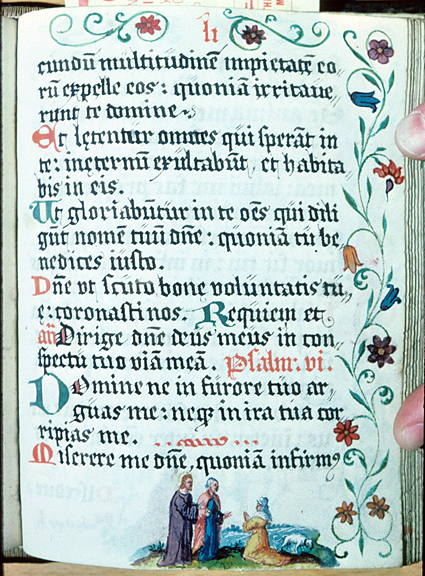 li
cundū multitudinē impietatē eo
rū expelle eos: quoniā irritaue
runt te domine.
Et letentur omnes qui sperāt in
te: ineternū exultabūt, et habita
bis in eis.
Ut gloriabūtur in te oēs qui dili
gūt nomē tuū dn̄e: quoniā tu be
nedices iusto.
Dn̄e vt scuto bone voluntatis tu
e: coronasti nos. Requiem et
añ Dirige dn̄e deus meus in con
spectu tuo viā meā. Psalm. vi.
Domine ne in furore tuo ar
guas me: neqꝫ in ira tua cor
ripias me.
Miserere me dn̄e, quoniā infirmꝰ